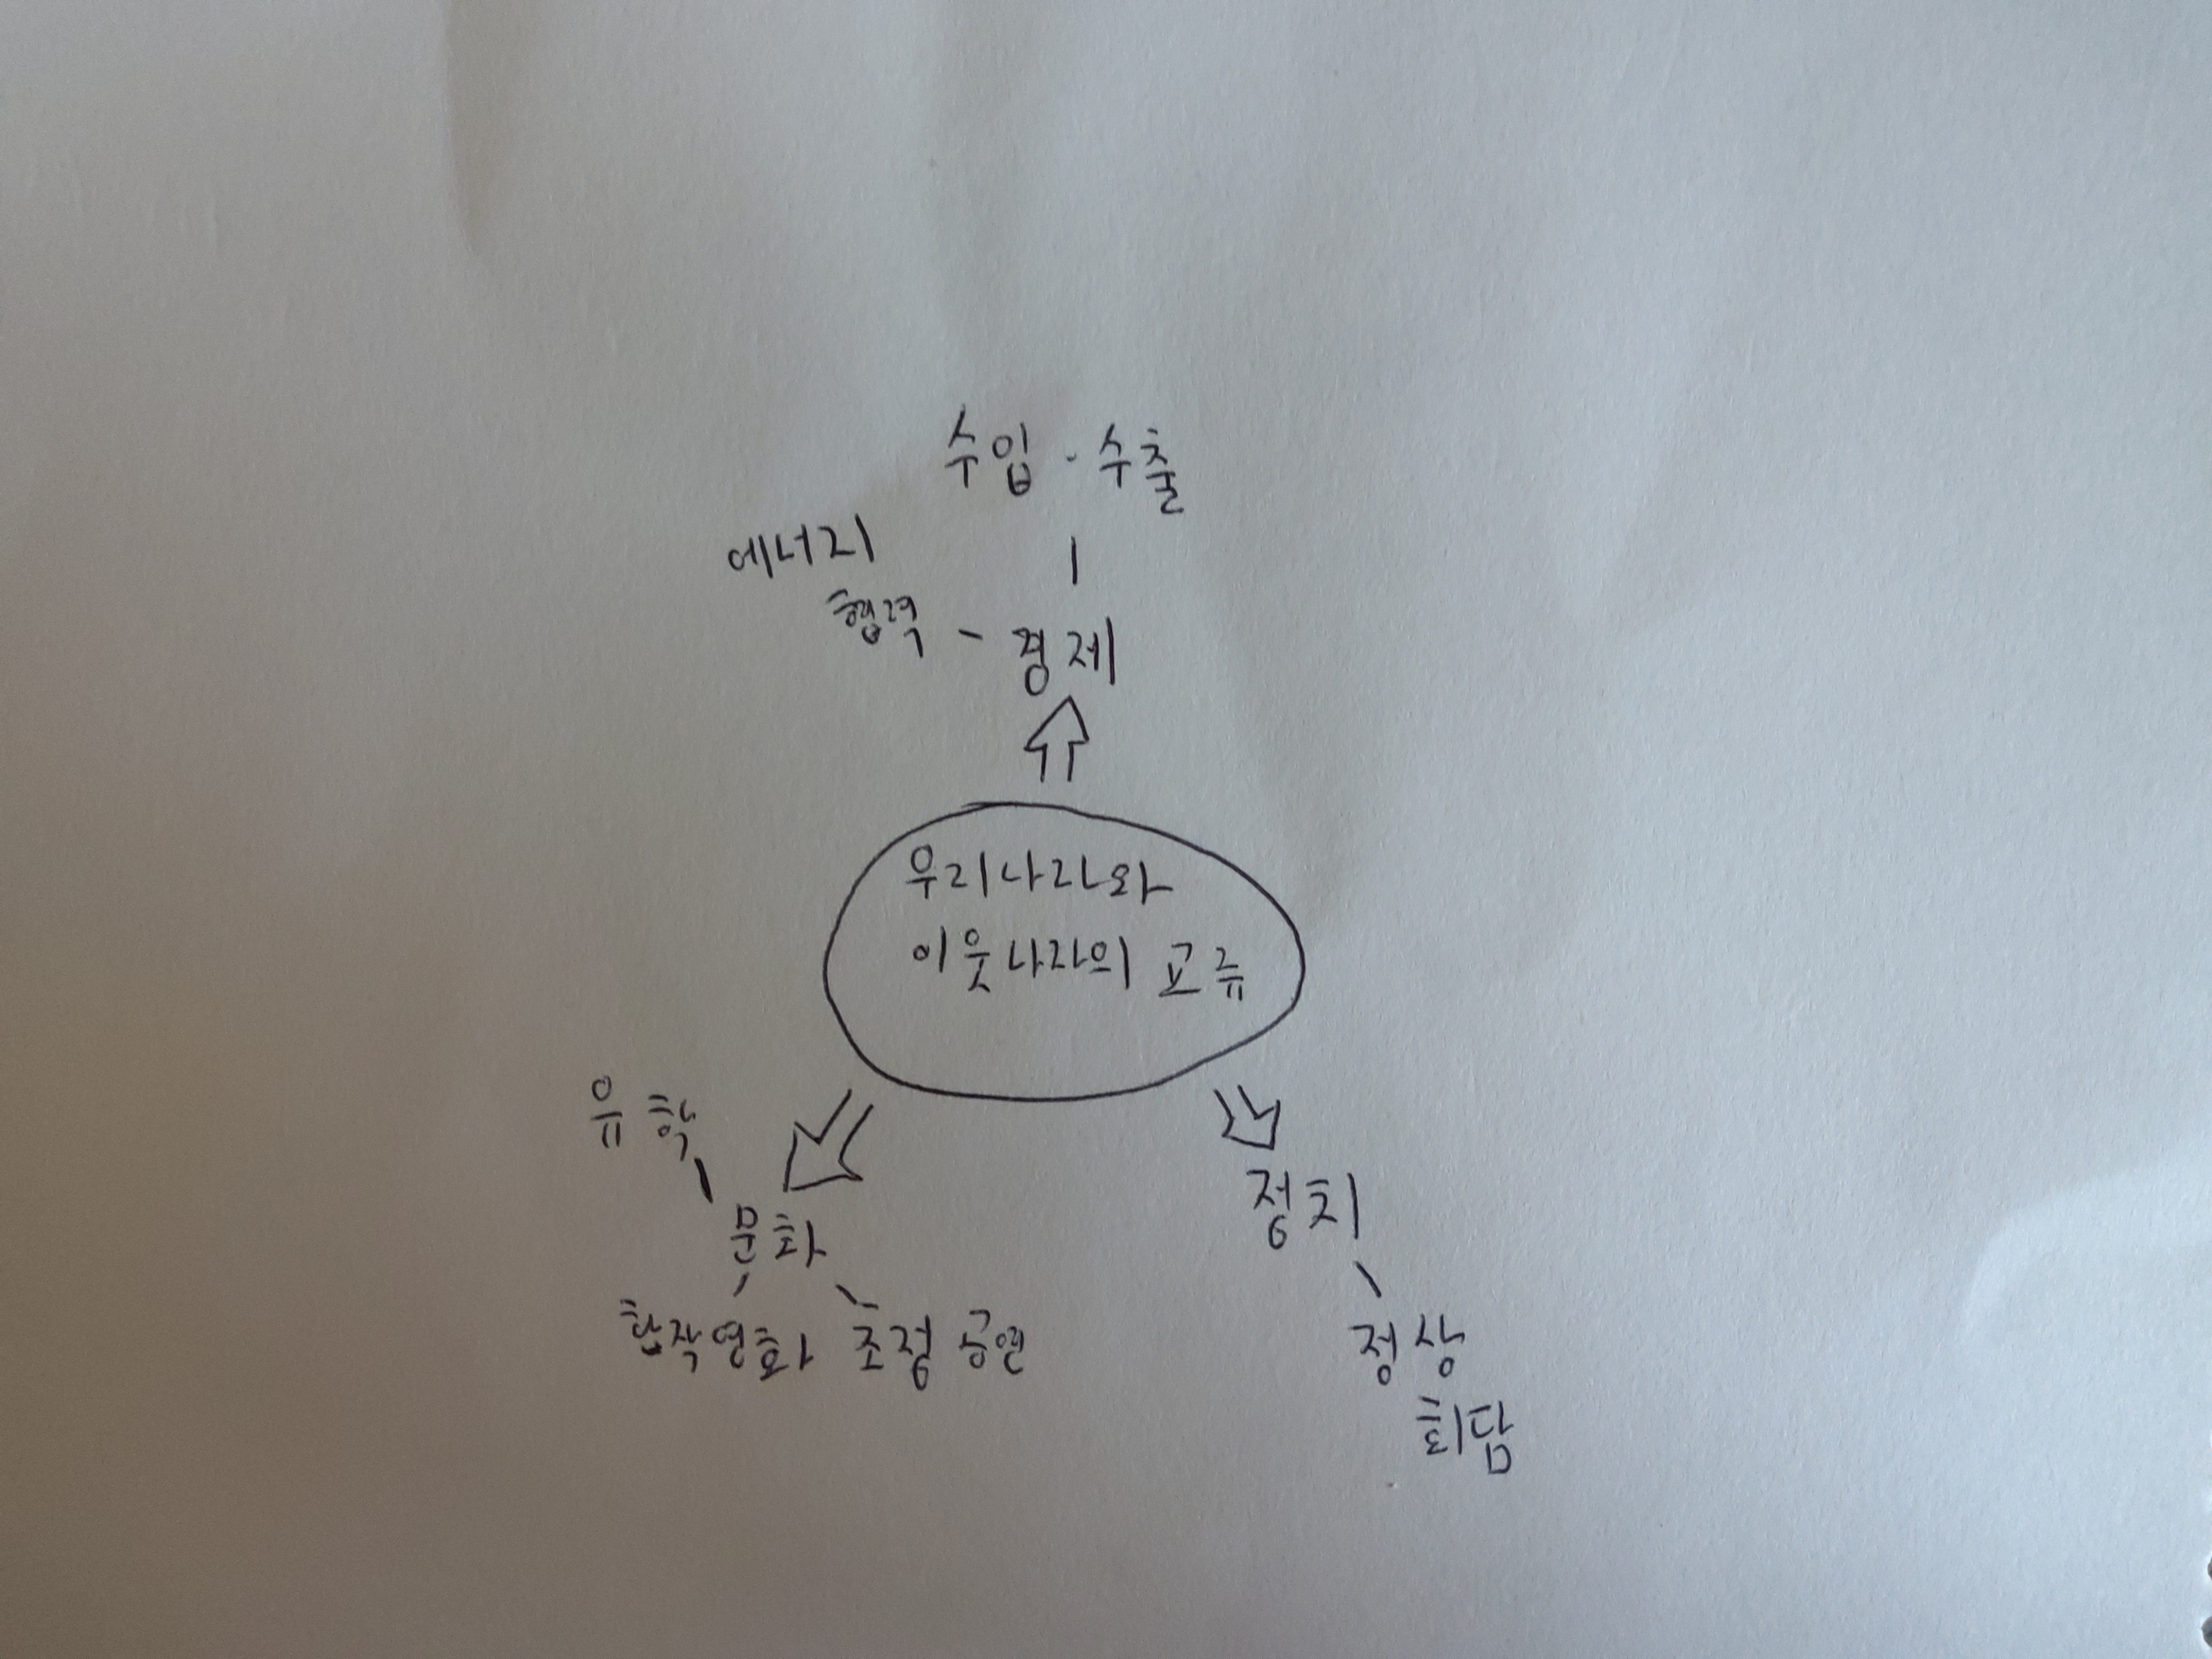 수입·수출
에너지
협력 - 경제
우리나라와
이웃나라의 교류
유학
문화
합작영화 초청 공연
정치
정상
회담